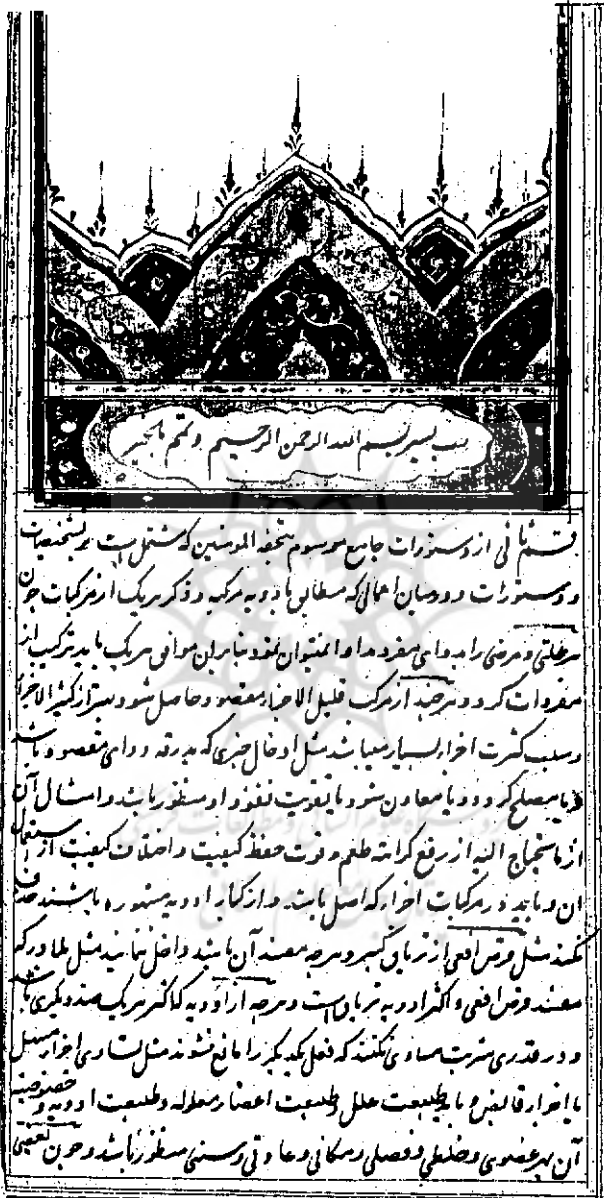 بسم الله الرحمن الرحیم وتمم بالخیر
قسم ثانی از دستورات جامع موسوم بتحفه المومنین که مشتمل است بر تشخیصات
و دستورات و در بیان اعمالی که متعلق بادویه مرکبه و ذکر هر یک از مرکبات چون
هر علتی و مرضی را بدوای مفرد مداوا نمیتوان نمود بنابران موافق هر یک باید ترکیب از
مفردات کرد و هر چند از مرکب قلیل الاجزا مقصود حاصل شود بهتر از کثیر الاجزا
و سبب کثرت اجزا بسیار میباشد مثل ادخال چیزی که بدرقه دوای مقصود باشد
یا مصلح کردد و یا معاون شود یا تقویت نفوذ او منظور باشد و امثال آن
از ما یحتاج الیه از رفع کراهة طعم و قوت حفظ کیفیت و اختلاف کیفیت از استعمال
ان و باید در مرکبات اجزا که اصل باشد و از کبار ادویه مشهوره باشند حذف
نکنند مثل قرص افعی از تریاق کبیر و هر چه مفسد آن باشد داخل ننمایند مثل بلادر که
مفسد قرص افعی و اکثر ادویه تریاق است و هر چه از ادویه که اکثر هر یک ضد دیکری باشد
و در قدری شربت مساوی نکنند که فعل یکدیکر را مانع نشوند مثل تساوی اجزا مسهل
با اجزا قابض و باید طبیعت علل و طبیعت اعضا معلوله و طبیعت ادویه و خصوصیت
آن بهر عضوی و خلطی و فصلی و مکانی و عادتی و سنی منظور باشد و چون بعضی